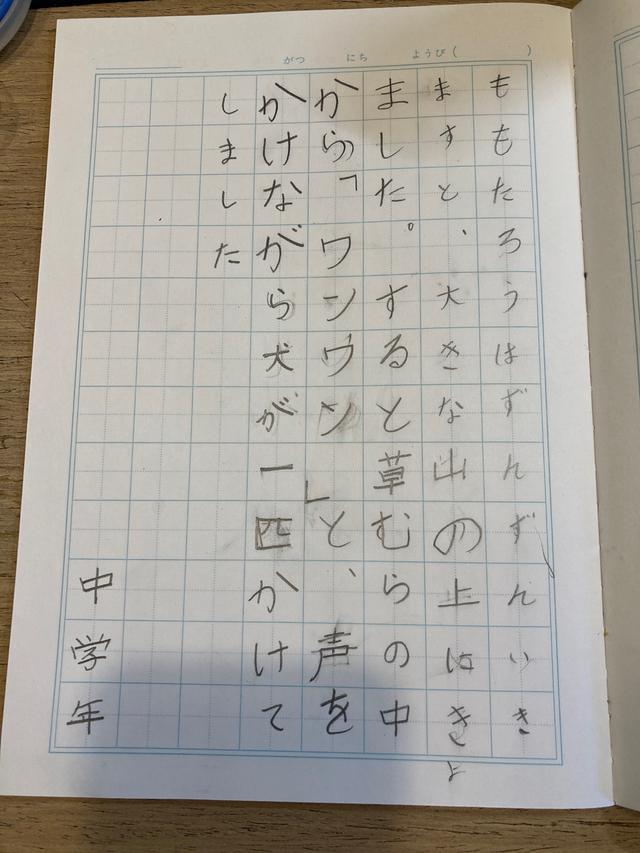 がつ にち ようび( )
ももたろうはずんずんいき
ますと、大きな山の上にきよ
ました。すると草むらの中
から「ワンワンと、声を
かけながら犬が一匹かけて
しました
中学年